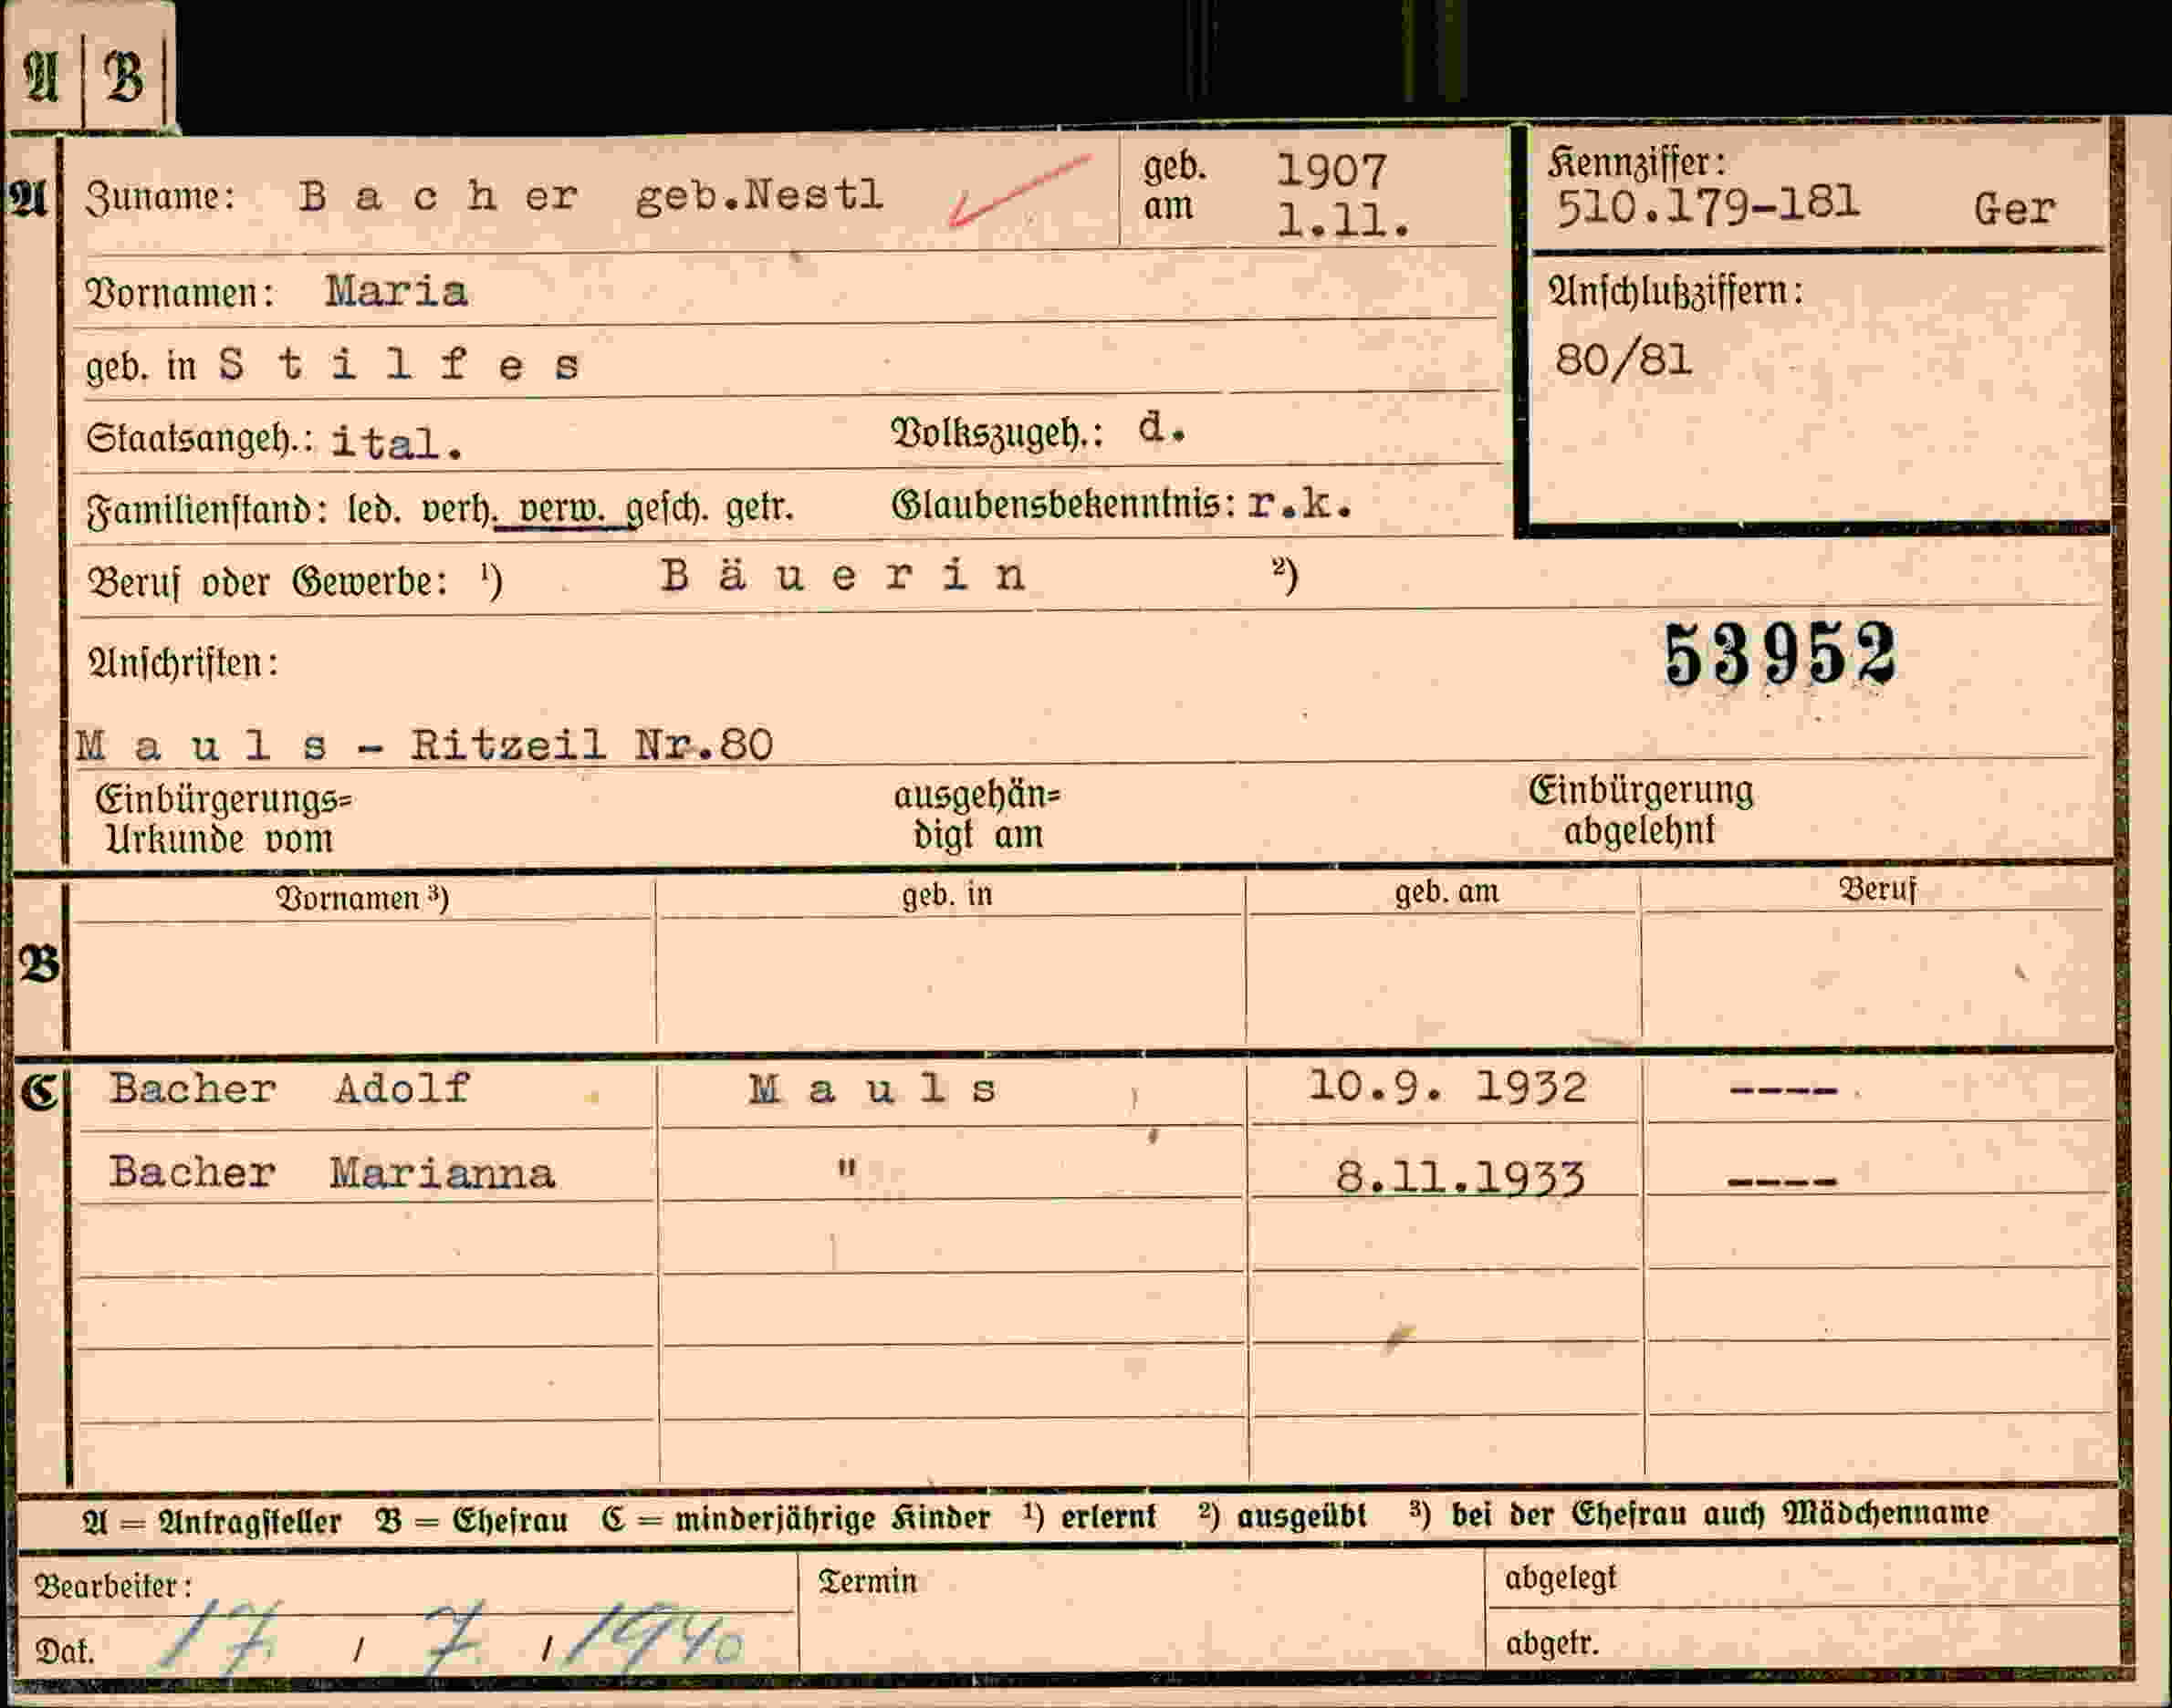 A B
A Zuname: B a c h er geb.Nestl geb. am 1907 1.11.
Kennziffer:
510.179-181 Ger
Vornamen: Maria
Anschlußziffern:
80/81
geb. in S t i l f e s
Staatsangeh.: ital. Volkszugeh.: d.
Familienstand: led. verh. verw. gesch. getr. Glaubensbekenntnis: r.k.
Beruf oder Gewerbe: ¹) B ä u e r i n ²)
Anschriften:
53952
M a u l s - Ritzeil Nr.80
Einbürgerungs=
Urkunde vom
ausgehän=
digt am
Einbürgerung
abgelehnt
Vornamen ³) geb. in geb. am Beruf
B
C Bacher Adolf M a u l s 10.9. 1932 ----
Bacher Marianna " 8.11.1933 ----
A = Antragsteller B = Ehefrau C = minderjährige Kinder ¹) erlernt ²) ausgeübt ³) bei der Ehefrau auch Mädchenname
Bearbeiter: Termin abgelegt
Dat. 17 / 7 / 1940 abgetr.